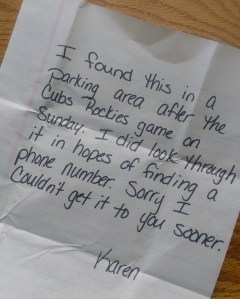 I found this in a
parking area after the
Cubs Rockies game on
Sunday. I did look through
it in hopes of finding a
phone number. Sorry I
Couldn't get it to you sooner.
Karen